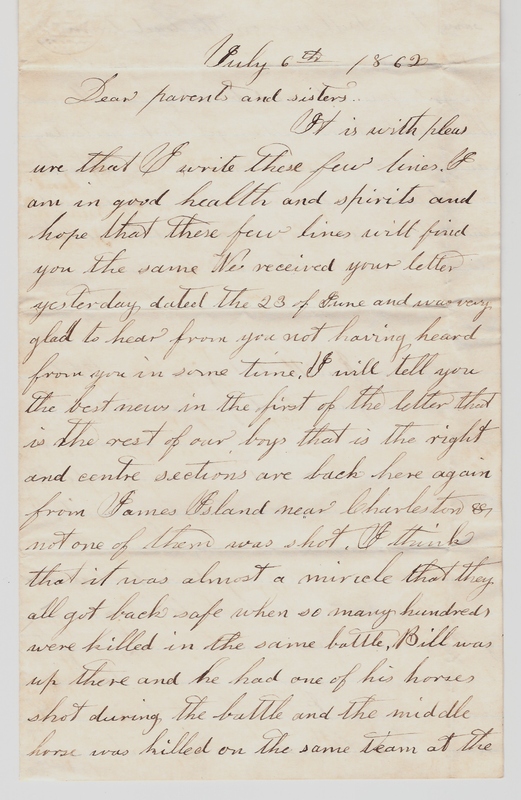 July 6th 1862
Dear parents and sisters..
It is with pleas
ure that I write these few lines. I
am in good health and spirits and
hope that these few lines will find
you the same We received your letter
yesterday dated the 23 of June and was very
glad to hear from you not having heard
from you in some time. I will tell you
the best news in the first of the letter that
is the rest of our boys that is the right
and centre sections are back here again
from James Island near Charleston &
not one of them was shot. I think
that it was almost a miricle that they
all got back safe when so many hundreds
were killed in the same battle. Bill was
up there and he had one of his horses
shot during the battle and the middle
horse was killed on the same team at the